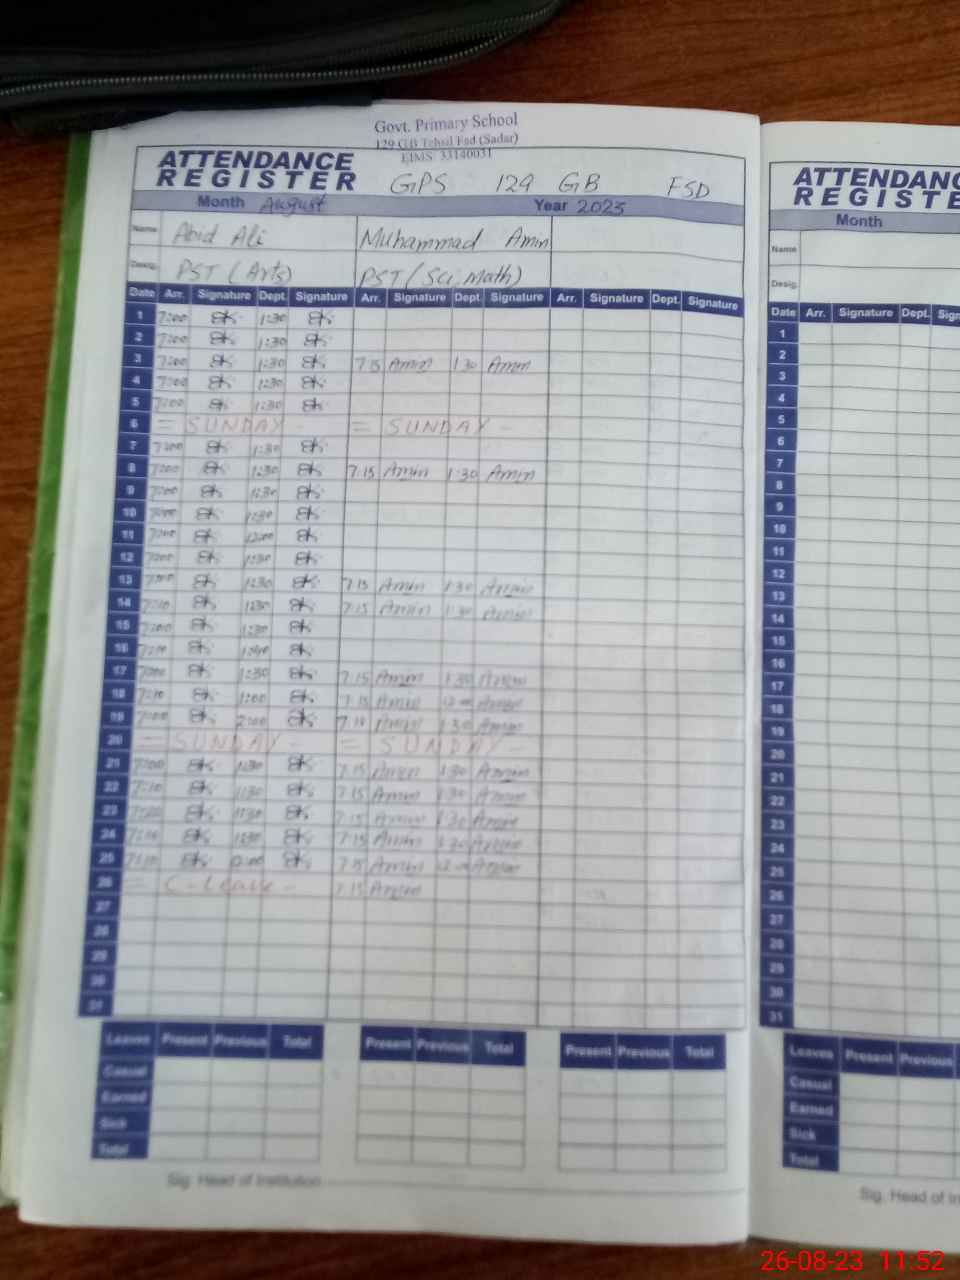 Govt. Primary School
129 GB Tehsil Fsd (Sadar)
EIMS: 33140031
ATTENDANCE
REGISTER
GPS 129 GB FSD
Month August Year 2023
Name Abid Ali Muhammad Amin
Desig. PST (Arts) PST (Sci, Math)
Date Arr. Signature Dept. Signature Arr. Signature Dept. Signature Arr. Signature Dept. Signature
1 7:00 1:30
2 7:00 1:30
3 7:00 1:30 7 15 Amin 1 30 Amin
4 7:00 1:30
5 7:00 1:30
6 = SUNDAY - = SUNDAY -
7 7:00 1:30
8 7:00 1:30 7 15 Amin 1:30 Amin
9 7:00 1:30
10 7:00 1:30
11 7:00 12:00
12 7:00 1:30
13 7:00 1:30 7 15 Amin 1 30 Amin
14 7:10 1:30 7:15 Amin 1:30 Amin
15 7:00 1:30
16 7:10
17 7:00 1:30 7 15 Amin 1:30 Amin
18 7:10 1:00 7 15 Amin Amin
19 7:00 2:00 7 Amin 1 30 Amin
20 = SUNDAY - = SUNDAY -
21 7:00 1:30 7 15 Amin 1:30 Amin
22 7:10 1:30 7 15 Amin 1:30 Amin
23 7:00 1:30 7:15 Amin 1:30 Amin
24 7:10 1:30 7 15 Amin 1:30 Amin
25 7:10 7 15 Amin Amin
26 = C-Leave - 7 15 Amin
27
28
29
30
31
Leaves Present Previous Total Present Previous Total Present Previous Total
Casual
Earned
Sick
Total
Sig. Head of Institution
ATTENDANC
REGISTE
Month
Name
Desig.
Date Arr. Signature Dept. Sign
1
2
3
4
5
6
7
8
9
10
11
12
13
14
15
16
17
18
19
20
21
22
23
24
25
26
27
28
29
30
31
Leaves Present Previous
Casual
Earned
Sick
Total
Sig. Head of In
26-08-23 11:52